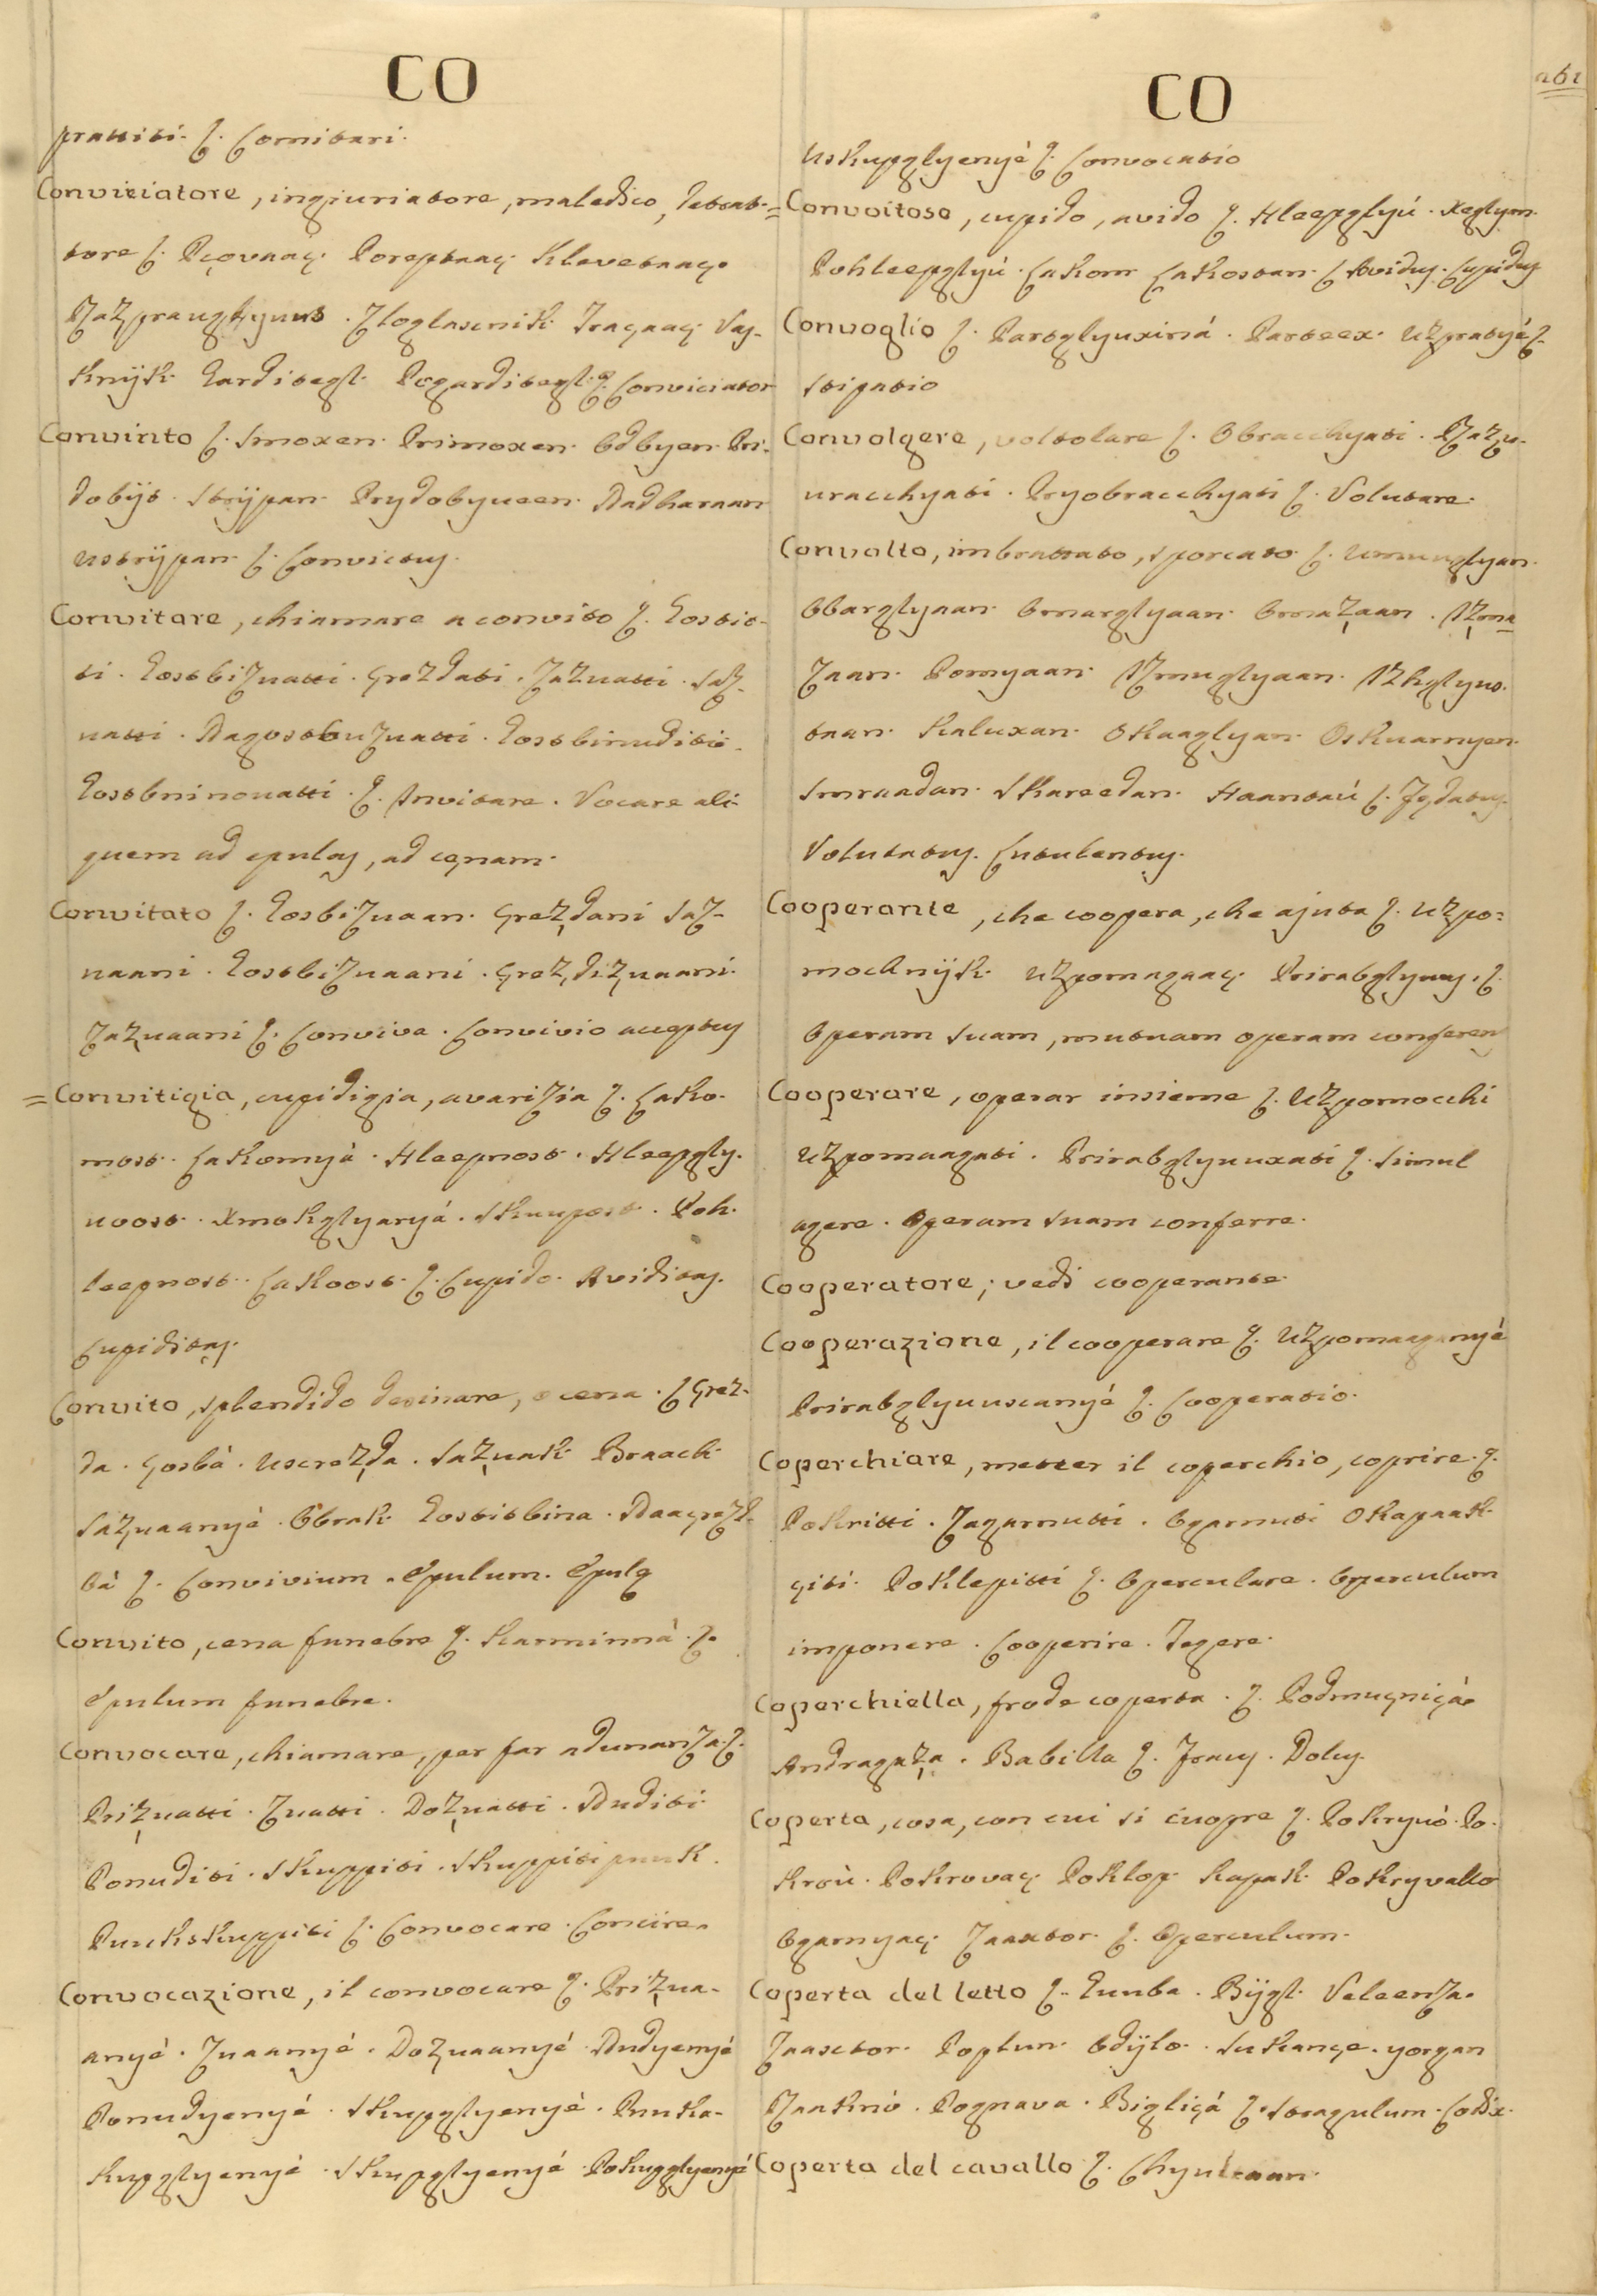 CO
prattiti. ſ. Comitari.
Conviciatore, ingiuriatore, maledico, detrat-
tore ſ. Pçovaaç. Poreptaaç. Klevetaaç.
Zloglascnik.
Knyik. Garditegl. Pogarditegl. ſ. Conviciator
Convinto ſ. Smoxen. Primoxen. Odbyen. Pri-
dobÿt. Strÿpan. Prydobyueen. Nadharaan
ustrÿpan. ſ. Convictus.
Convitare, chiamare a convito ſ. Gostit-
ti. Gostbizuatti. Grezdati. Zazuatti. Saz-
uatti. Nagostbuzuatti. Gostbinuditi.
Gostbninouatti. ſ. Invitare. Vocare ali-
quem ad epulas, ad cęnam.
Convitato ſ. Gosbizuaan. Grezdani Saz-
uaani. Gostbizuaani. Grezdizuaani.
Zazuaani ſ. Conviva. Convivio acceptus
= Convitigia, cupidigia, avarizia ſ. Lako-
most. Lakomyà. Hleepnost. Hleepgly-
uoost. Xmokglyaryá. Skuupost. Poh-
leepnost. Lakoost. ſ. Cupido. Aviditas.
Cupiditas.
Convito, splendido desinare, o cena. ſ Grez-
da. Gosbà. Uscrezda. Sazuak. Braach.
Sazuaanyè. Obrok. Gostitbina. Naagrezd-
bà ſ. Convivium. Epulum. Epulę
Convito, cena funebre ſ. Karminnà. ſ.
Epulum funebre.
Convocare, chiamare, per far adunanza. ſ.
Prizuatti. Zuatti. Dozuatti. Nuditi.
Ponuditi. Skuppiti. Skuppiti puuk.
Puukskuppiti ſ. Convocare. Concire.
Convocazione, il convocare ſ. Prizua-
anyé. Zuaanyé. Dozuaanyé Nudyenyé
Ponudyenyé. Skupglyenyè. Puuka-
kupglyenyè. Skupglyenyé. Pokupglyenyé
CO
261
uskupglyenyè ſ. Convocatio
= Convoitoso, cupido, avido ſ. Hleepglyú. Xeglyan.
Pohleepglyú. Lakom. Lakostan. ſ Avidus. Cupidus
Convoglio ſ. Partglyuxinà. Parteex. Uzpratyé ſ.
Stipatio
Convolgere, voltolare ſ. Obracchyati. Razu-
uracchyati. Pryobracchyati ſ. Volutare.
Convolto, imbrattato, sporcato ſ. Umuuglyan.
Obarglyaan. Omarglyaan. Omazaan. Izma
zaan. Pomyaan. Izmuglyaan. Izkglyuo.
taan. Kaluxan. Okaaglyan. Oskuarnyen.
Smraadan. Skareedan. Haantaú ſ. Fędatus.
Volutatus. Lutulentus.
Cooperante, che coopera, che ajuta ſ. Uzpo-
mochnÿk. Uzpomagaaç. Prirabglyuuç. ſ.
Operam suam, mutuam operam conferens
Cooperare, operar insieme ſ. Uzpomocchi
Uzpomaagati. Prirabglyuuxati ſ. Simul
agere. Operam suam conferre.
Cooperatore; vedi cooperante.
Cooperazione, il cooperare ſ. Uzpomaaganyé
Prirabglyuuscanyé ſ. Cooperatio.
Coperchiare, metter il coperchio, coprire. ſ.
Pokritti. Zagarnutti. Ogarnuti Okapaak-
çiti. Poklepitti ſ. Operculare. Operculum
imponere. Cooperire. Tegere.
Coperchiella, frode coperta. ſ. Podmuçniçà.
Andragaza. Babilla ſ. Fraus. Dolus.
Coperta, cosa, con cui si cuopre ſ. Pokryuò. Po-
kroù. Pokrovaç. Poklop. Kapak. Pokryvallo
Ogarnyaç. Zaastor. ſ. Operculum.
Coperta del letto ſ. Guuba. Bÿgl. Veleenza.
Zaasctor. Poplun. Odÿlo. Sukançe. yorgan
Raaknò. Pognava. Bigliçá ſ. Stragulum. Lodix.
Coperta del cavallo ſ. Chyultaan.